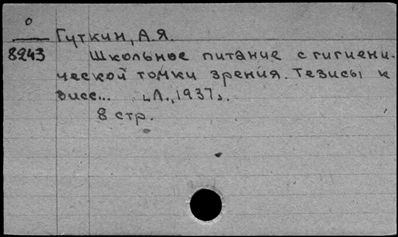 О
8243
Гуткин, А.Я.
Школьное питание с гигиени-
ческой томки зрения. Тезисы к
дисс... "Л., 1937".
8 стр.